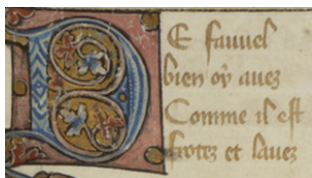 DE fauvel
bien oÿ avez
Comme il est
frotez et lavez